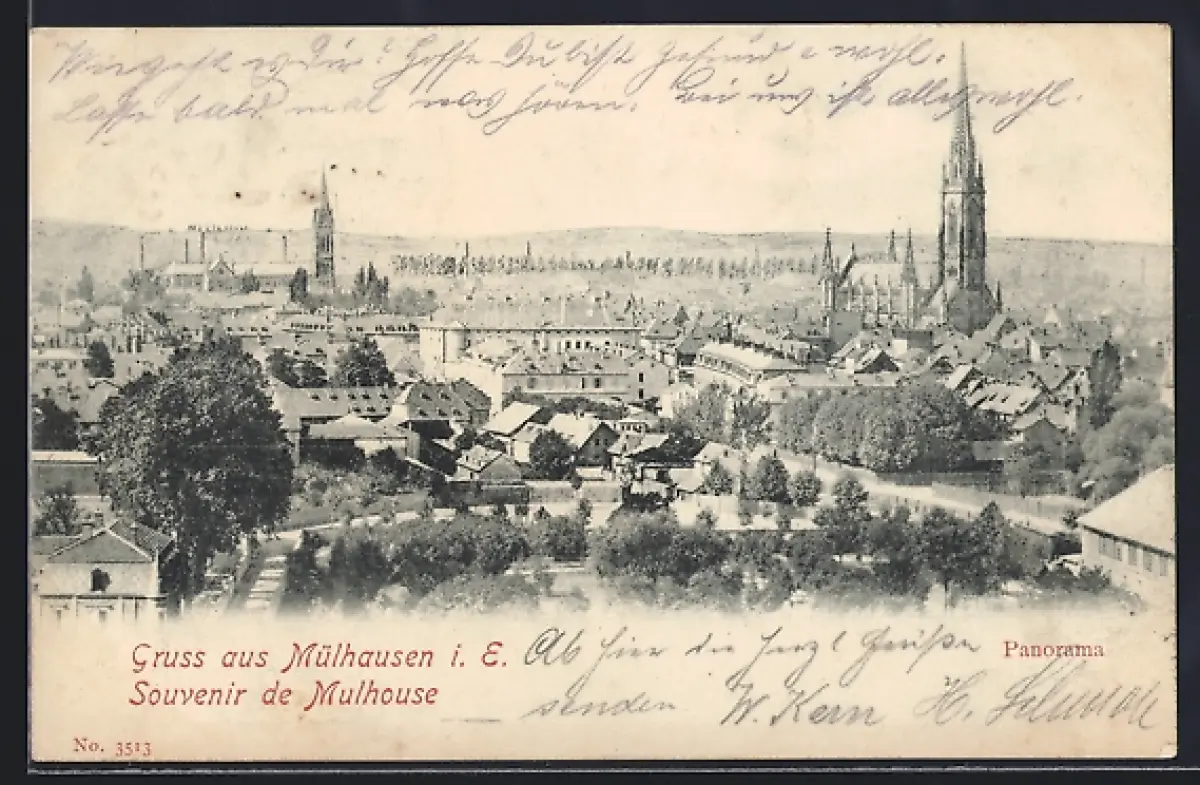 Wie geht es Dir? Hoffe Du bist gesund u. wohl.
Lasse bald mal was hören. Bei uns ist alles wohl.
Gruss aus Mülhausen i. E.
Souvenir de Mulhouse
Ab hier die herzl Grüße
senden W. Kern H.
Panorama
No. 3513